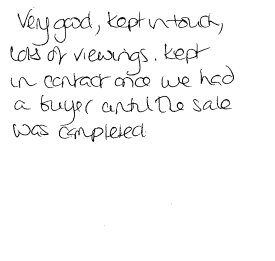 Very good, kept in touch,
lots of viewings. kept
in contact once we had
a buyer until the sale
was completed